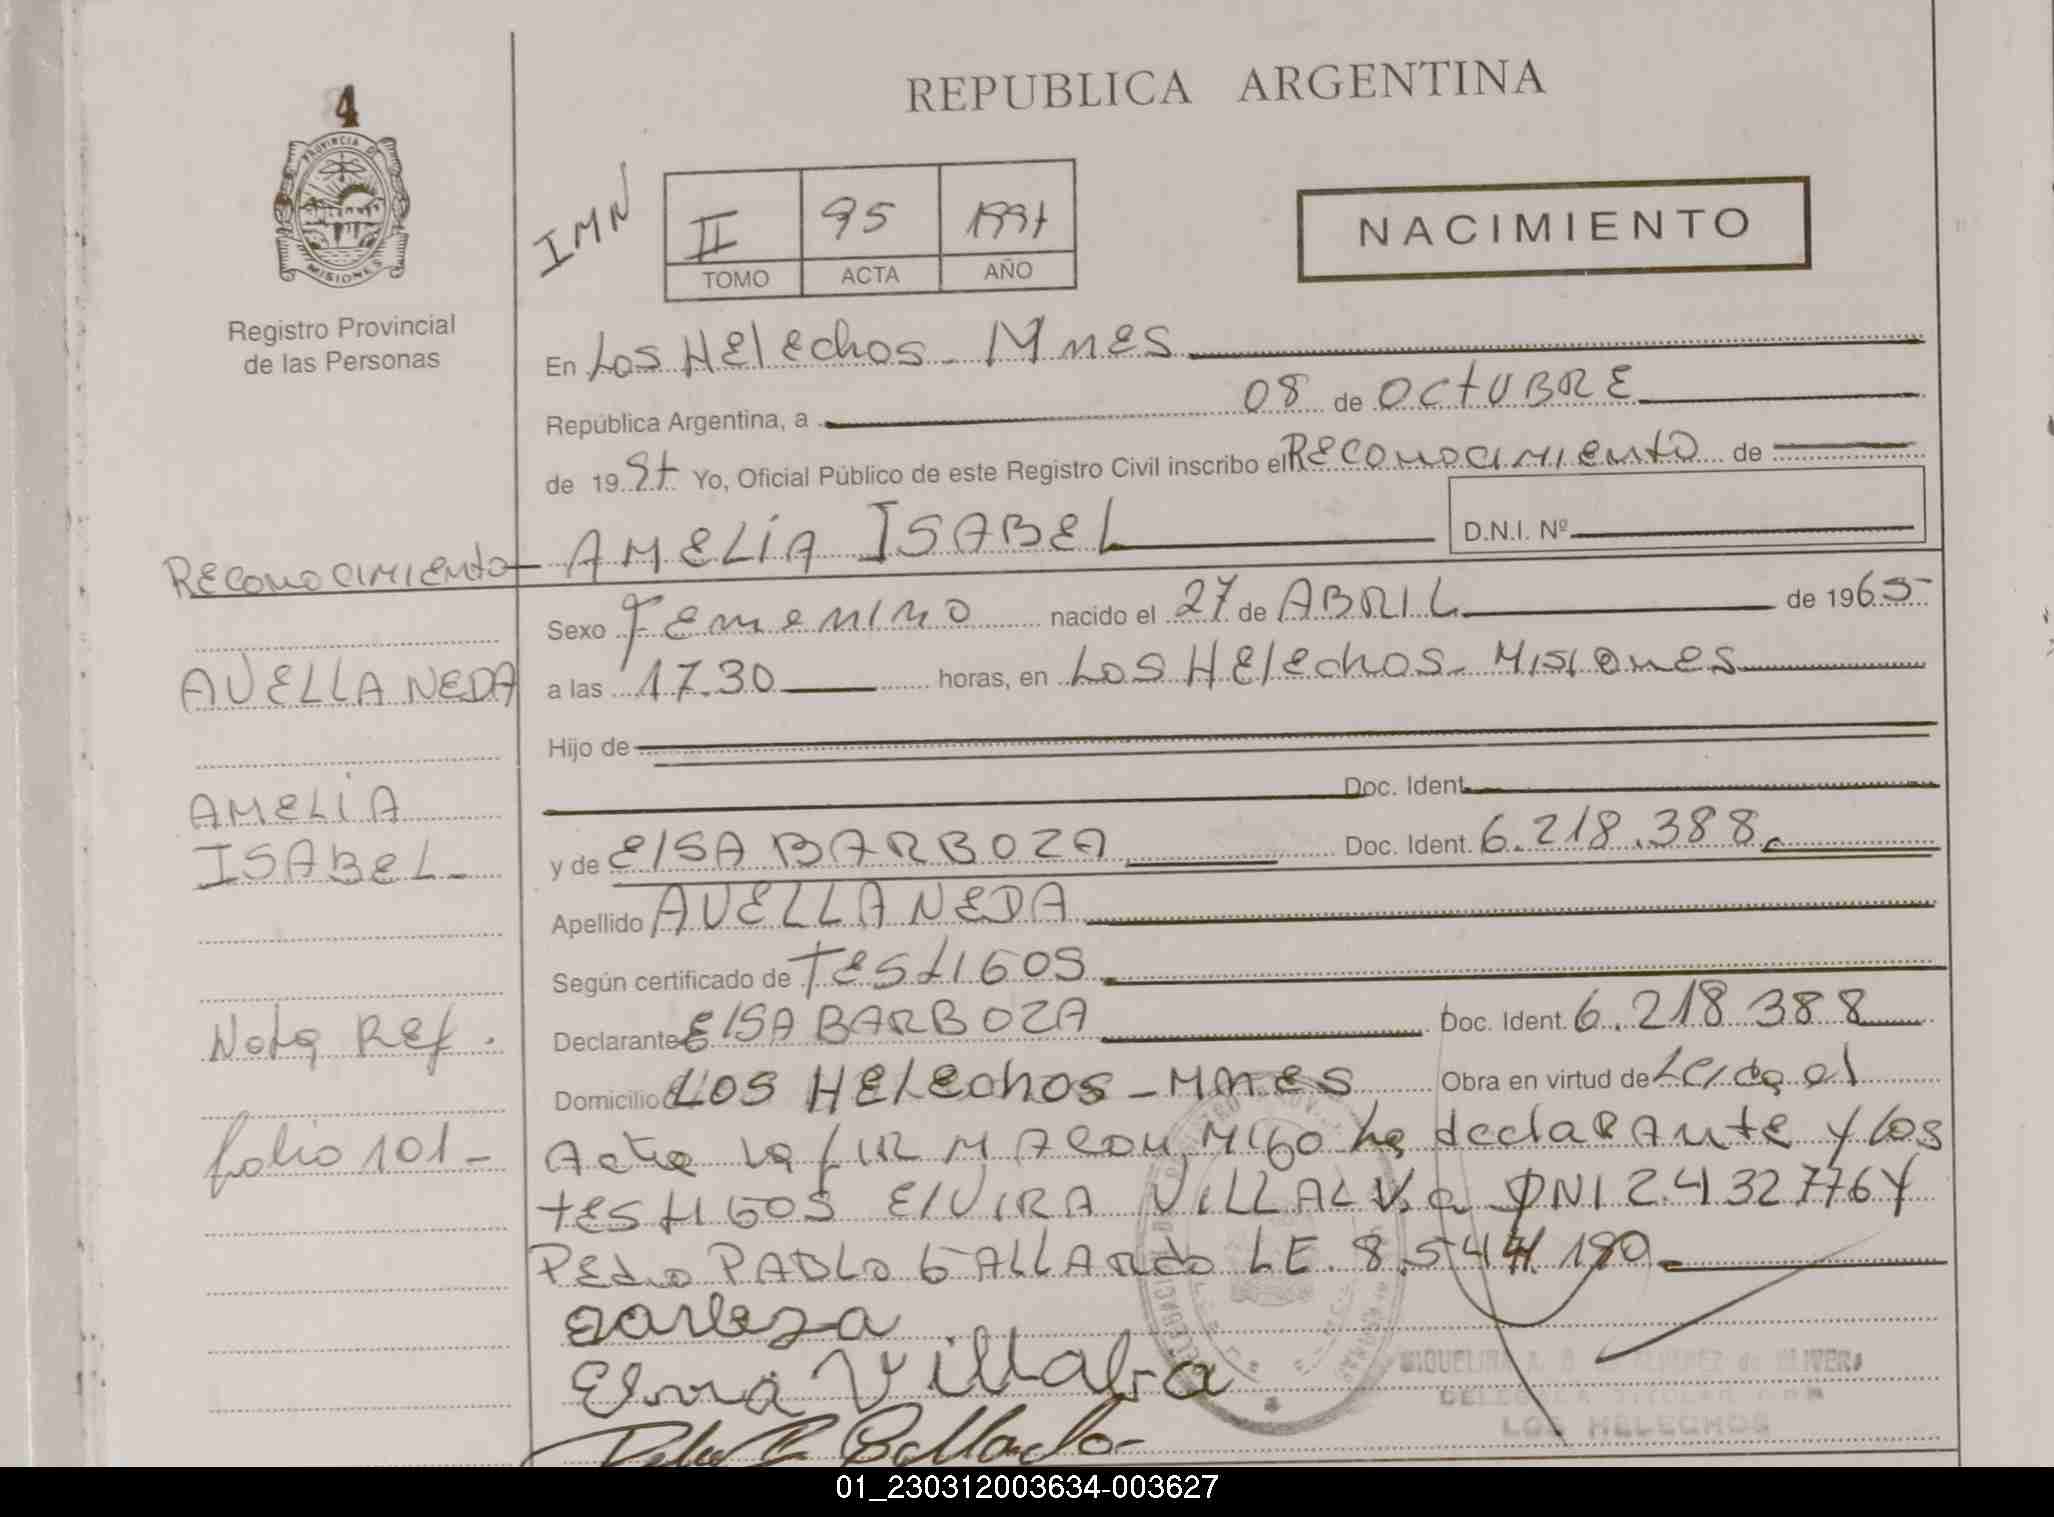 REPUBLICA ARGENTINA
4
PROVINCIA DE
MISIONES
Registro Provincial
de las Personas
IMN
II 95 1997
TOMO ACTA AÑO
NACIMIENTO
En Los HElEchos - MnES
República Argentina, a 08 de OCtUBRE
de 1997 Yo, Oficial Público de este Registro Civil inscribo el RECONOCIMIENtO de
AMELIA ISABEL
D.N.I. Nº
Sexo FEmENINO nacido el 27 de ABRIL de 1965
a las 17.30 horas, en Los HElEchos - MISIONES
Hijo de
Doc. Ident.
y de ElSA BARBOZA Doc. Ident. 6.218.388.
Apellido AVELLANEDA
Según certificado de TEStIGOS
Declarante ElSA BARBOZA Doc. Ident. 6.218.388
Domicilio LOS HELEchos - MnES Obra en virtud de Leida el
Acta la fIRMARON MIGO la declaRAntE y los
tEStIGOS ElVIRA VILLALVa DNI 24327764
PEdro PABLo GALLARdo LE. 8.544.190
RECONOCIMIENto
AVELLANEDA
AMELIA
ISABEL -
Nota REf.
folio 101 -
Barboza
Elvira Villalba
Pedro P. Gallardo
DELEGADA TITULAR
LOS HELECHOS
01_230312003634-003627